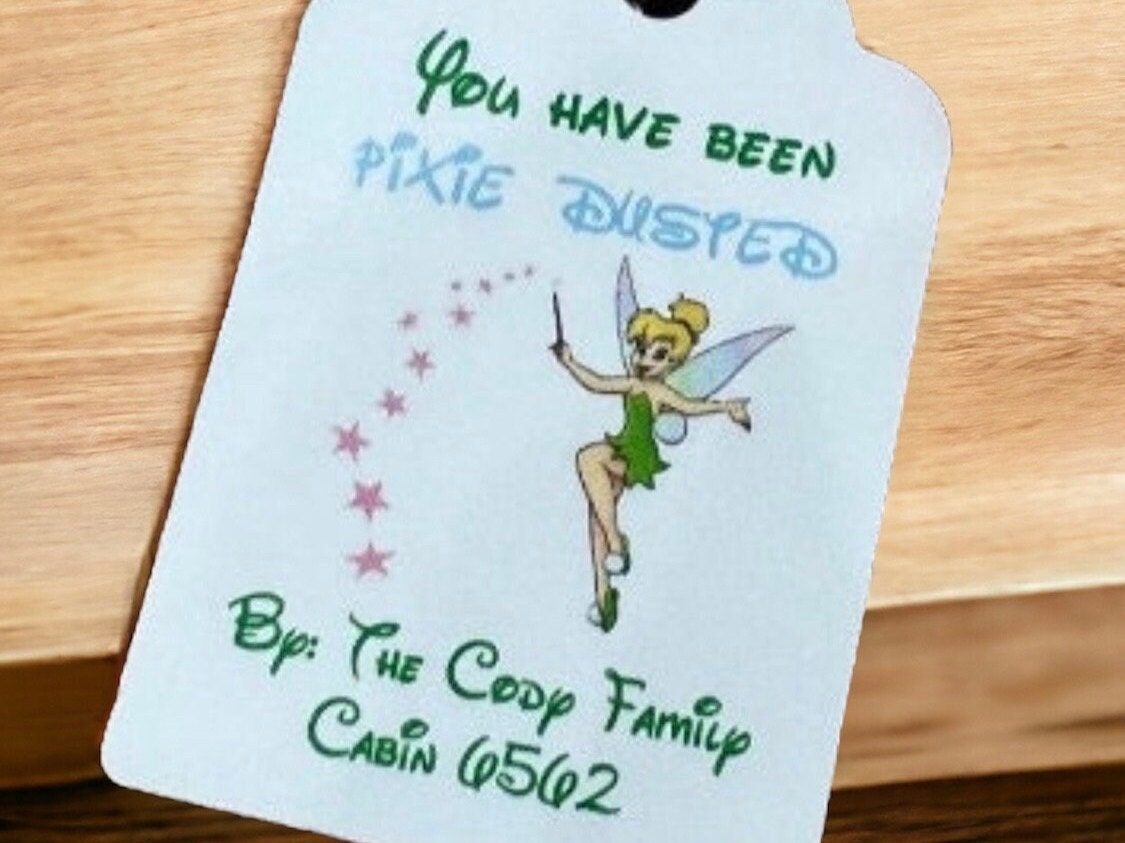 You have been
Pixie Dusted
By: The Cody Family
Cabin 6562